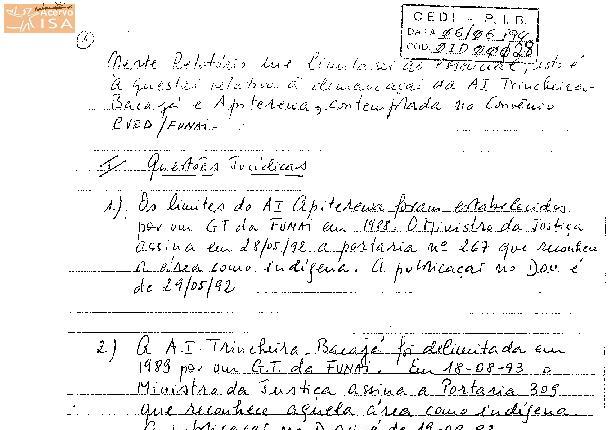 ACERVO
ISA
CEDI - P.I.B.
DATA 06/06/94
COD. 0ID00028
Neste Relatório me limitarei ao
a questão relativa à demarcação da AI Trincheira-
Bacajá e Apiterewa, contemplada no Convênio
CVRD/FUNAI-
I Questões Jurídicas
1.) Os limites da AI Apiterewa foram estabelecidos
por um GT da FUNAI em 1988. O Ministro da Justiça
assina em 28/05/92 a portaria nº 267 que reconhece
a área como indígena. A publicação no DOU é
de 29/05/92
2.) A A.I. Trincheira Bacajá foi delimitada em
1989 por um G.T. da FUNAI. Em 18-08-93 o
Ministro da Justiça assina a Portaria 309
que reconhece aquela área como indígena.
A publicação no DOU é de 19-08-93